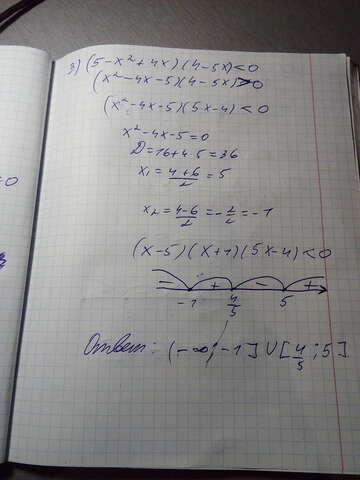 з) (5-x²+4x)(4-5x)<0
(x²-4x-5)(4-5x)>0
(x²-4x-5)(5x-4)<0
x²-4x-5=0
D=16+4·5=36
x₁=(4+6)/2=5
x₂=(4-6)/2=-2/2=-1
(x-5)(x+1)(5x-4)<0
- + - +
-1 4/5 5
Ответ: (-∞;-1]∪[4/5;5]